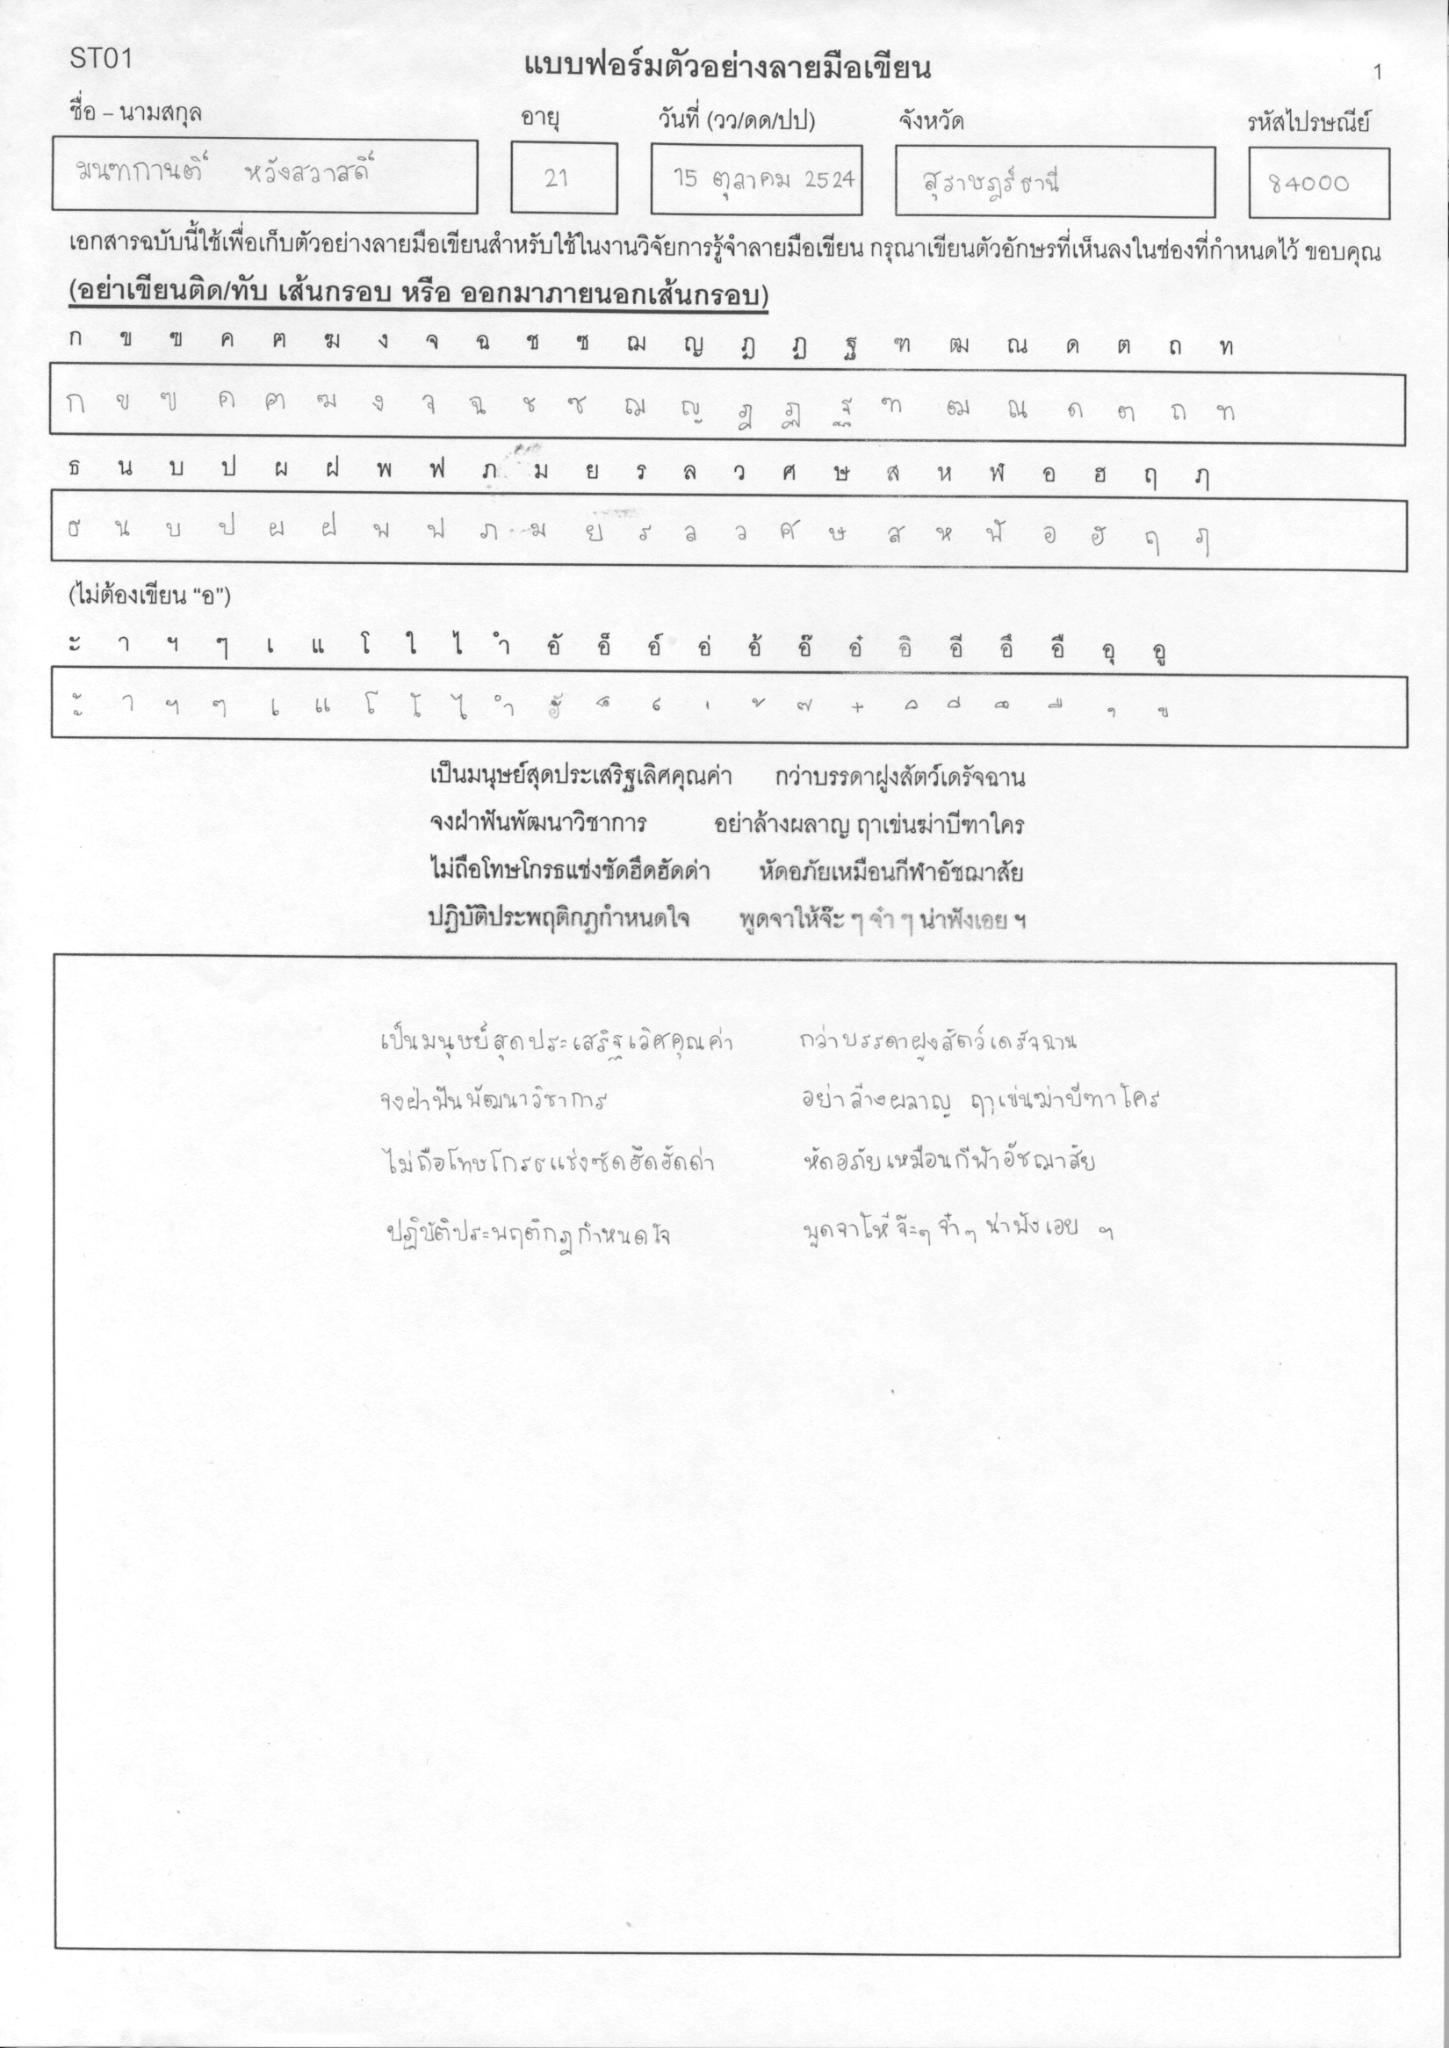 ST01
แบบฟอร์มตัวอย่างลายมือเขียน
1
ชื่อ – นามสกุล อายุ วันที่ (วว/ดด/ปป) จังหวัด รหัสไปรษณีย์
มนฑกานติ์ หวังสวาสดิ์ 21 15 ตุลาคม 2524 สุราษฎร์ธานี 84000
เอกสารฉบับนี้ใช้เพื่อเก็บตัวอย่างลายมือเขียนสำหรับใช้ในงานวิจัยการรู้จำลายมือเขียน กรุณาเขียนตัวอักษรที่เห็นลงในช่องที่กำหนดไว้ ขอบคุณ
(อย่าเขียนติด/ทับ เส้นกรอบ หรือ ออกมาภายนอกเส้นกรอบ)
ก ข ฃ ค ฅ ฆ ง จ ฉ ช ซ ฌ ญ ฎ ฏ ฐ ฑ ฒ ณ ด ต ถ ท
ก ข ฃ ค ฅ ฆ ง จ ฉ ช ซ ฌ ญ ฎ ฏ ฐ ฑ ฒ ณ ด ต ถ ท
ธ น บ ป ผ ฝ พ ฟ ภ ม ย ร ล ว ศ ษ ส ห ฬ อ ฮ ฤ ฦ
ธ น บ ป ผ ฝ พ ฟ ภ ม ย ร ล ว ศ ษ ส ห ฬ อ ฮ ฤ ฦ
(ไม่ต้องเขียน “อ”)
ะ า ฯ ๆ เ แ โ ใ ไ ำ อั อ็ อ์ อ่ อ้ อ๊ อ๋ อิ อี อึ อื อุ อู
ะ า ฯ ๆ เ แ โ ใ ไ ำ ั ็ ์ ่ ้ ๊ ๋ ิ ี ึ ื ุ ู
เป็นมนุษย์สุดประเสริฐเลิศคุณค่า กว่าบรรดาฝูงสัตว์เดรัจฉาน
จงฝ่าฟันพัฒนาวิชาการ อย่าล้างผลาญ ฤาเข่นฆ่าบีฑาใคร
ไม่ถือโทษโกรธแช่งซัดฮึดฮัดด่า หัดอภัยเหมือนกีฬาอัชฌาสัย
ปฏิบัติประพฤติกฎกำหนดใจ พูดจาให้จ๊ะ ๆ จ๋า ๆ น่าฟังเอย ฯ
เป็นมนุษย์สุดประเสริฐเลิศคุณค่า กว่าบรรดาฝูงสัตว์เดรัจฉาน
จงฝ่าฟันพัฒนาวิชาการ อย่าล้างผลาญ ฤาเข่นฆ่าบีฑาใคร
ไม่ถือโทษโกรธแช่งซัดฮึดฮัดด่า หัดอภัยเหมือนกีฬาอัชฌาสัย
ปฏิบัติประพฤติกฎกำหนดใจ พูดจาให้จ๊ะๆ จ๋าๆ น่าฟังเอย ฯ